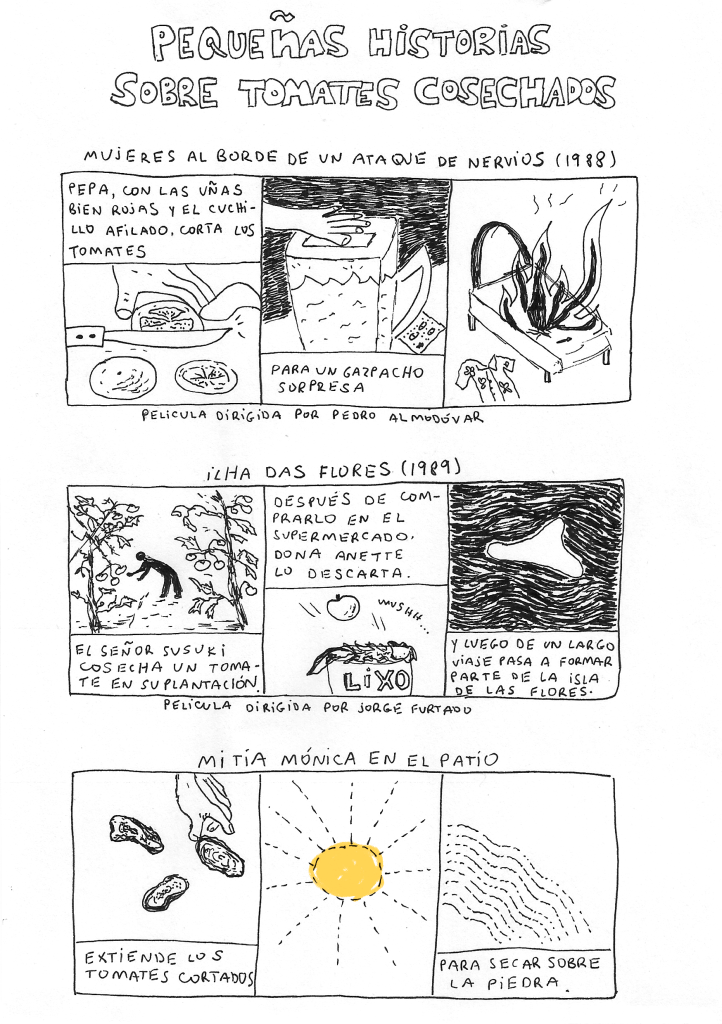 PEQUEÑAS HISTORIAS
SOBRE TOMATES COSECHADOS
MUJERES AL BORDE DE UN ATAQUE DE NERVIOS (1988)
PEPA, CON LAS UÑAS
BIEN ROJAS Y EL CUCHI-
LLO AFILADO, CORTA LOS
TOMATES
PARA UN GAZPACHO
SORPRESA
PELÍCULA DIRIGIDA POR PEDRO ALMODÓVAR
ILHA DAS FLORES (1989)
EL SEÑOR SUSUKI
COSECHA UN TOMA-
TE EN SU PLANTACIÓN.
DESPUÉS DE COM-
PRARLO EN EL
SUPERMERCADO,
DONA ANETTE
LO DESCARTA.
WUSHH...
LIXO
Y LUEGO DE UN LARGO
VIAJE PASA A FORMAR
PARTE DE LA ISLA
DE LAS FLORES.
PELÍCULA DIRIGIDA POR JORGE FURTADO
MI TÍA MÓNICA EN EL PATIO
EXTIENDE LOS
TOMATES CORTADOS
PARA SECAR SOBRE
LA PIEDRA.